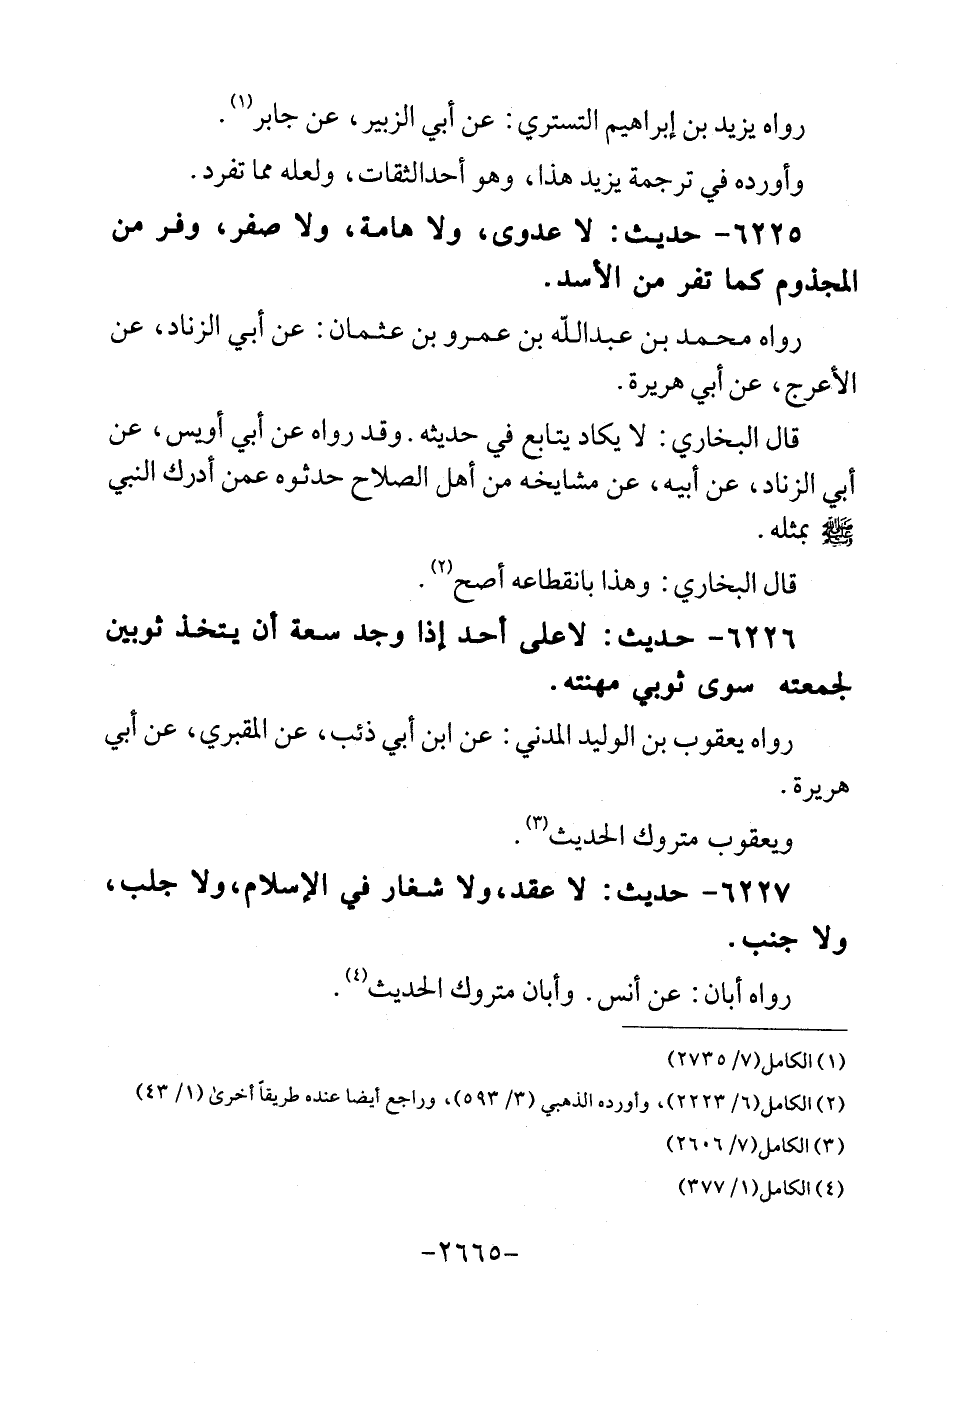 رواه يزيد بن إبراهيم التستري: عن أبي الزبير، عن جابر(١).
وأورده في ترجمة يزيد هذا، وهو أحدالثقات، ولعله مما تفرد.
٦٢٢٥- حديث: لا عدوى، ولا هامة، ولا صفر، وفر من
المجذوم كما تفر من الأسد.
رواه محمد بن عبدالله بن عمرو بن عثمان: عن أبي الزناد، عن
الأعرج، عن أبي هريرة.
قال البخاري: لا يكاد يتابع في حديثه. وقد رواه عن أبي أويس، عن
أبي الزناد، عن أبيه، عن مشايخه من أهل الصلاح حدثوه عمن أدرك النبي
ﷺ بمثله.
قال البخاري: وهذا بانقطاعه أصح(٢).
٦٢٢٦- حديث: لاعلى أحد إذا وجد سعة أن يتخذ ثوبين
لجمعته سوى ثوبي مهنته.
رواه يعقوب بن الوليد المدني: عن ابن أبي ذئب، عن المقبري، عن أبي
هريرة.
ويعقوب متروك الحديث(٣).
٦٢٢٧- حديث: لا عقد، ولا شغار في الإسلام، ولا جلب،
ولا جنب.
رواه أبان: عن أنس. وأبان متروك الحديث(٤).
(١) الكامل(٧/ ٢٧٣٥)
(٢) الكامل(٦/ ٢٢٢٣)، وأورده الذهبي (٣/ ٥٩٣)، وراجع أيضا عنده طريقاً أخرىٰ (١/ ٤٣)
(٣) الكامل(٧/ ٢٦٠٦)
(٤) الكامل(١/ ٣٧٧)
-٢٦٦٥-